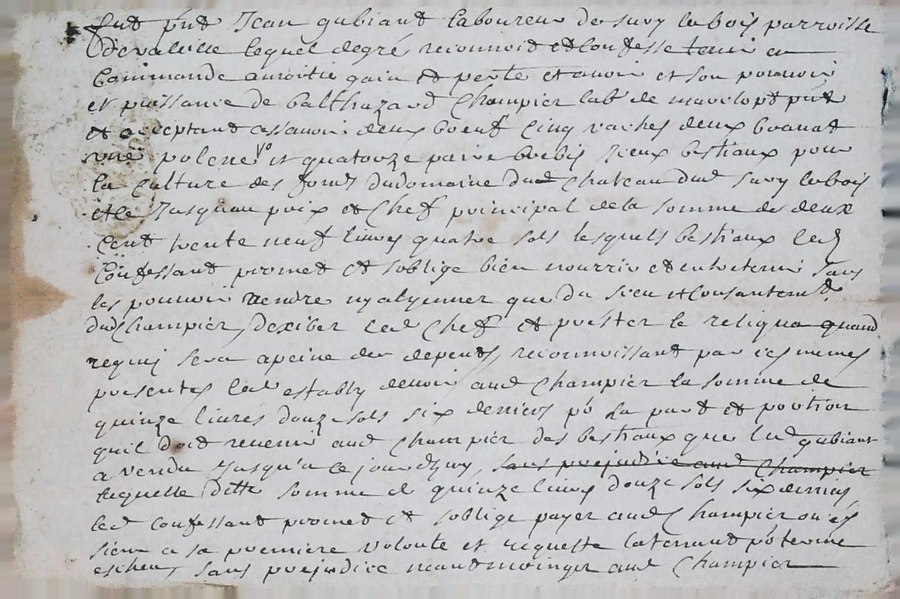 fut pñt Jean gubiand laboureur de sury le bois parroisse
de valeille lequel de gré reconnoit et confesse tenir en
Commande a moitié gain et perte et avoir et son pouvoir
et puissance de balthazard Champier labr de pñt
et acceptant assavoir deux boeuf Cinq vaches deux bravat
une et quatorze paire brebis Iceux bestiaux pour
la Culture des fonds du domaine dud Chateau dud sury le bois
et ce Jusquau prix et Chef principal de la somme de deux
Cent trente neuf livres quatre sols lesquels bestiaux led
Confessant promet et soblige bien nourrir et entretenir sans
les pouvoir vendre ny alyenner que du sceu et consantemt
dud Champier, dexiber led Chef et prester le reliqua quand
requis sera a peine des depents, reconnoissant par ces mêmes
presentes led estably devoir aud Champier la somme de
quinze livres douze sols six deniers po sa part et portion
quil doit revenir aud Champier des bestiaux que led gubiant
a vendu Jusqu'a ce jourdhuy, sans prejudice aud Champier
laquelle ditte somme de quinze livres douze sols six deniers
led Confessant promet et soblige payer aud Champier ou es
siens a sa premiere volonté et requette la tenant po terme
escheu, sans prejudice neantmoings aud Champier